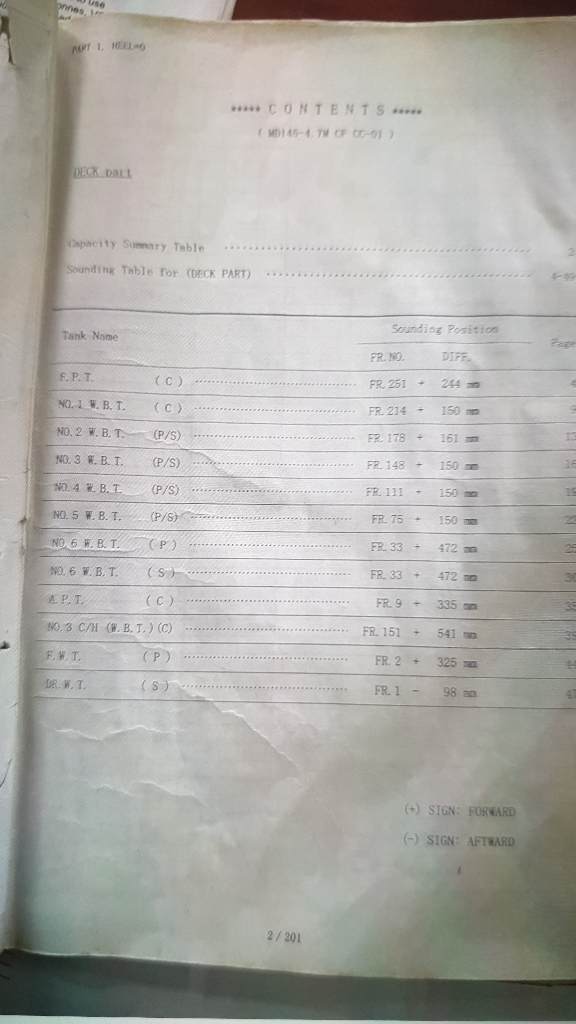 PART 1. HEEL=0
***** C O N T E N T S *****
DECK part
Capacity Summary Table ........................ 2
Sounding Table for (DECK PART) ........................
Tank Name Sounding Position Page
FR. NO. DIFF.
F. P. T. ( C ) ........................ FR. 251 + 244 mm 4
NO. 1 W. B. T. ( C ) ........................ FR. 214 + 150 mm 9
NO. 2 W. B. T. (P/S) ........................ FR. 178 + 161 mm
NO. 3 W. B. T. (P/S) ........................ FR. 148 + 150 mm
NO. 4 W. B. T. (P/S) ........................ FR. 111 + 150 mm
NO. 5 W. B. T. (P/S) ........................ FR. 75 + 150 mm
NO. 6 W. B. T. ( P ) ........................ FR. 33 + 472 mm
NO. 6 W. B. T. ( S ) ........................ FR. 33 + 472 mm
A. P. T. ( C ) ........................ FR. 9 + 335 mm
NO. 3 C/H (W. B. T. ) (C) ........................ FR. 151 + 541 mm
F. W. T. ( P ) ........................ FR. 2 + 325 mm
DR. W. T. ( S ) ........................ FR. 1 - 98 mm
(+) SIGN: FORWARD
(-) SIGN: AFTWARD
2 / 201